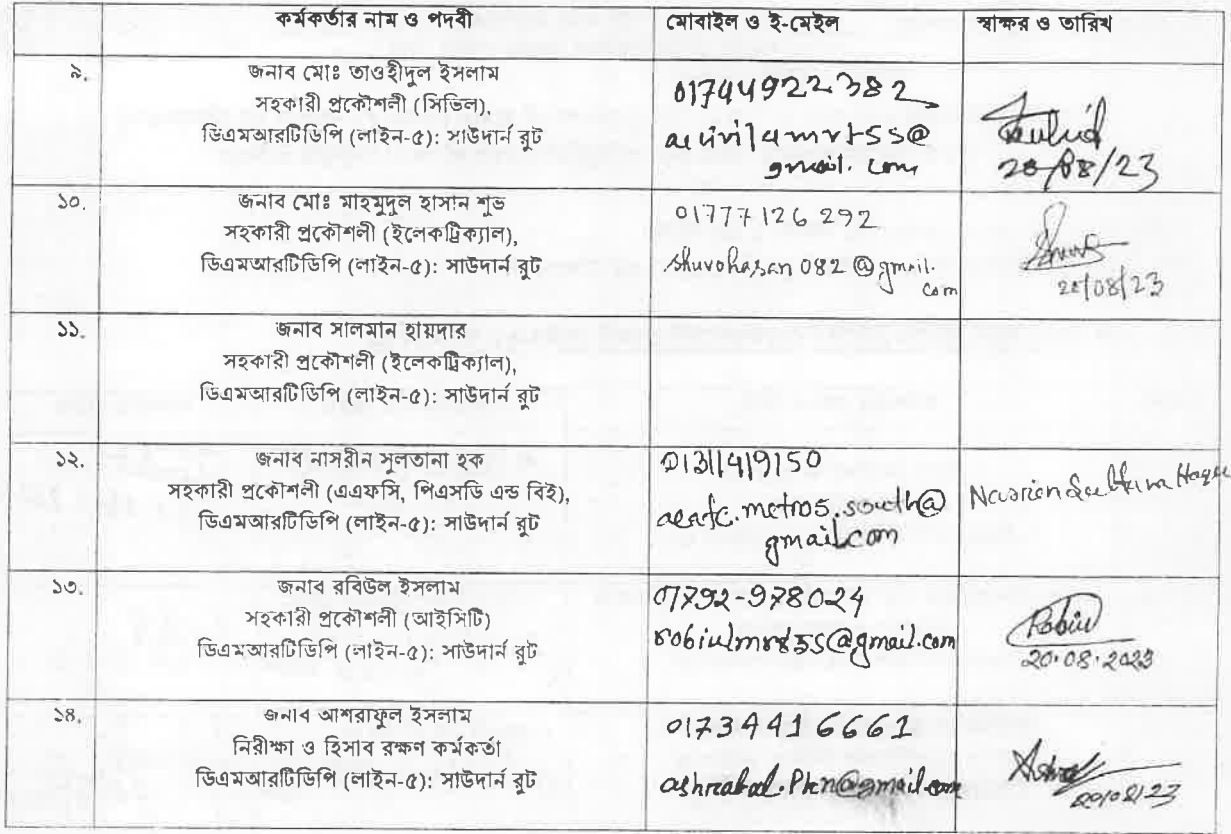 কর্মকর্তার নাম ও পদবী
মোবাইল ও ই-মেইল
স্বাক্ষর ও তারিখ
৯.
জনাব মোঃ তাওহীদুল ইসলাম
সহকারী প্রকৌশলী (সিভিল),
ডিএমআরটিডিপি (লাইন-৫): সাউদার্ন রুট
01744922382
gmail.com
20/08/23
১০.
জনাব মোঃ মাহমুদুল হাসান শুভ
সহকারী প্রকৌশলী (ইলেকট্রিক্যাল),
ডিএমআরটিডিপি (লাইন-৫): সাউদার্ন রুট
01777126292
shuvohasan082@gmail.
com
20/08/23
১১.
জনাব সালমান হায়দার
সহকারী প্রকৌশলী (ইলেকট্রিক্যাল),
ডিএমআরটিডিপি (লাইন-৫): সাউদার্ন রুট
১২.
জনাব নাসরীন সুলতানা হক
সহকারী প্রকৌশলী (এএফসি, পিএসডি এন্ড বিই),
ডিএমআরটিডিপি (লাইন-৫): সাউদার্ন রুট
01311419150
aeafc.metro5.south@
gmail.com
১৩.
জনাব রবিউল ইসলাম
সহকারী প্রকৌশলী (আইসিটি)
ডিএমআরটিডিপি (লাইন-৫): সাউদার্ন রুট
01792-978024
robiulmrt5s@gmail.com
Robiul
20.08.2023
১৪.
জনাব আশরাফুল ইসলাম
নিরীক্ষা ও হিসাব রক্ষণ কর্মকর্তা
ডিএমআরটিডিপি (লাইন-৫): সাউদার্ন রুট
01734416661
20/08/23